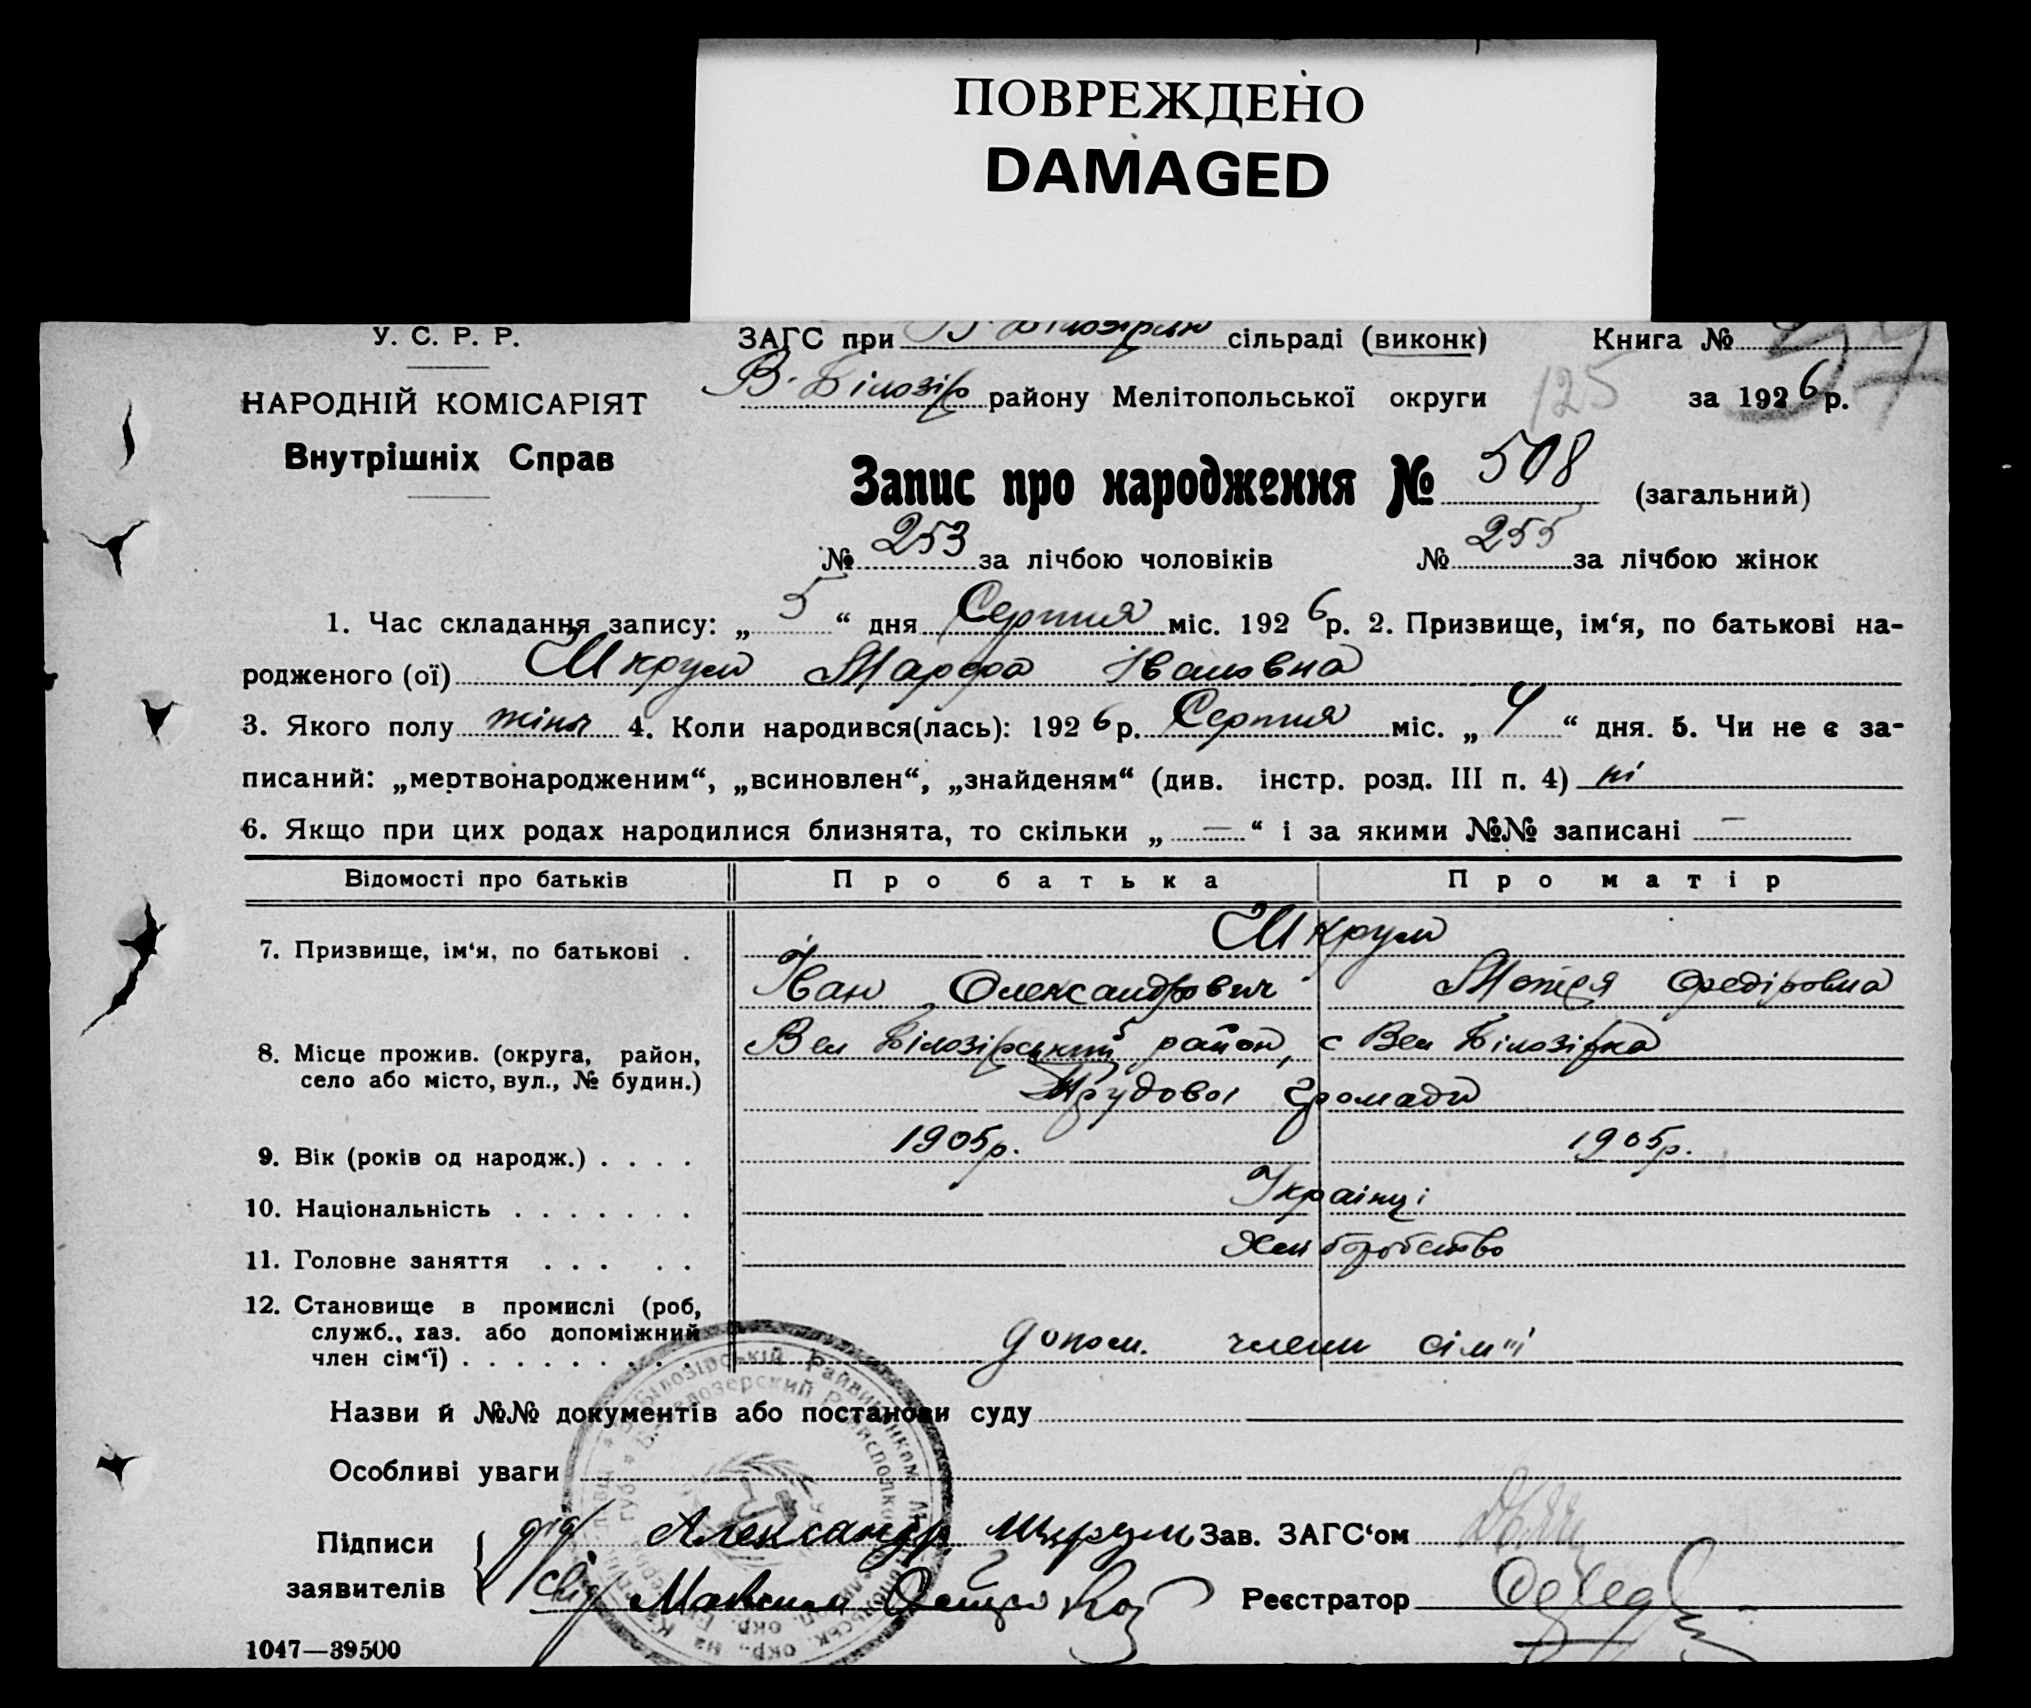 ПОВРЕЖДЕНО
DAMAGED
У. С. Р. Р.
ЗАГС при В. Білозірск сільраді (виконк) Книга №
НАРОДНІЙ КОМІСАРІЯТ
Внутрішніх Справ
В. Білозір району Мелітопольської округи 125 за 1926 р.
Запис про народження № 508 (загальний)
№ 253 за лічбою чоловіків № 255 за лічбою жінок
1. Час складання запису: „ 5 “ дня Серпня міс. 1926 р. 2. Призвище, ім‘я, по батькові на-
родженого (ої) Шкрум Марфа Івановна
3. Якого полу жіноч 4. Коли народився(лась): 1926 р. Серпня міс. „ 4 “ дня. 5. Чи не є за-
писаний: „мертвонародженим“, „всиновлен“, „знайденям“ (див. інстр. розд. III п. 4) ні
6. Якщо при цих родах народилися близнята, то скільки „ — “ і за якими №№ записані —
Відомості про батьків Про батька Про матір
7. Призвище, ім‘я, по батькові . Шкрум
Іван Олександрович Мотря Федіровна
8. Місце прожив. (округа, район,
село або місто, вул., № будин.)
Вел Білозірський район, с Вел Білозірка
Трудової громади
9. Вік (років од народж.) . . . . 1905р. 1905р.
10. Національність . . . . . . . Українці
11. Головне заняття . . . . . Хліборобство
12. Становище в промислі (роб,
служб., хаз. або допоміжний
член сім‘ї) . . . . . . . . . допом. члени сім'ї
Назви й №№ документів або постанови суду
Особливі уваги
Підписи
заявителів
дід Александр Шкрум Зав. ЗАГС‘ом
свід Максим Реєстратор
1047—39500